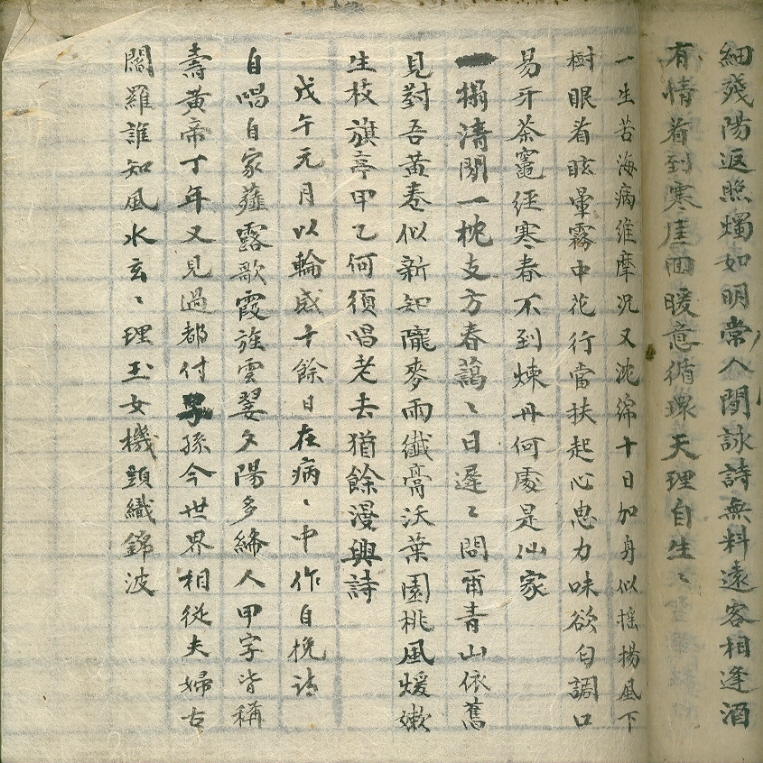 細殘陽返照燭如明常人閒詠詩無料遠客相逢酒
有情着到寒崖面暖意循環天理自生〻
一生苦海病維摩況又沈綿十日加身似搖揚風下
樹眼看眩暈霧中花行當扶起心忠力味欲勻調口
易牙茶竈經寒春不到煉丹何處是仙家
榻清閒一枕支方春藹〻日遲〻問爾青山依舊
見對吾黃卷似新知隴麥雨纖膏沃葉園桃風煖嫩
生枝旗亭甲乙何須唱老去猶餘漫興詩
戊午元月以輪感十餘日在病〻中作自挽詩
自唱自家薤露歌霞旌雲翣夕陽多絳人甲字皆稱
壽黃帝丁年又見過都付子孫今世界相從夫婦古
閻羅誰知風水玄〻理玉女機頭織錦波